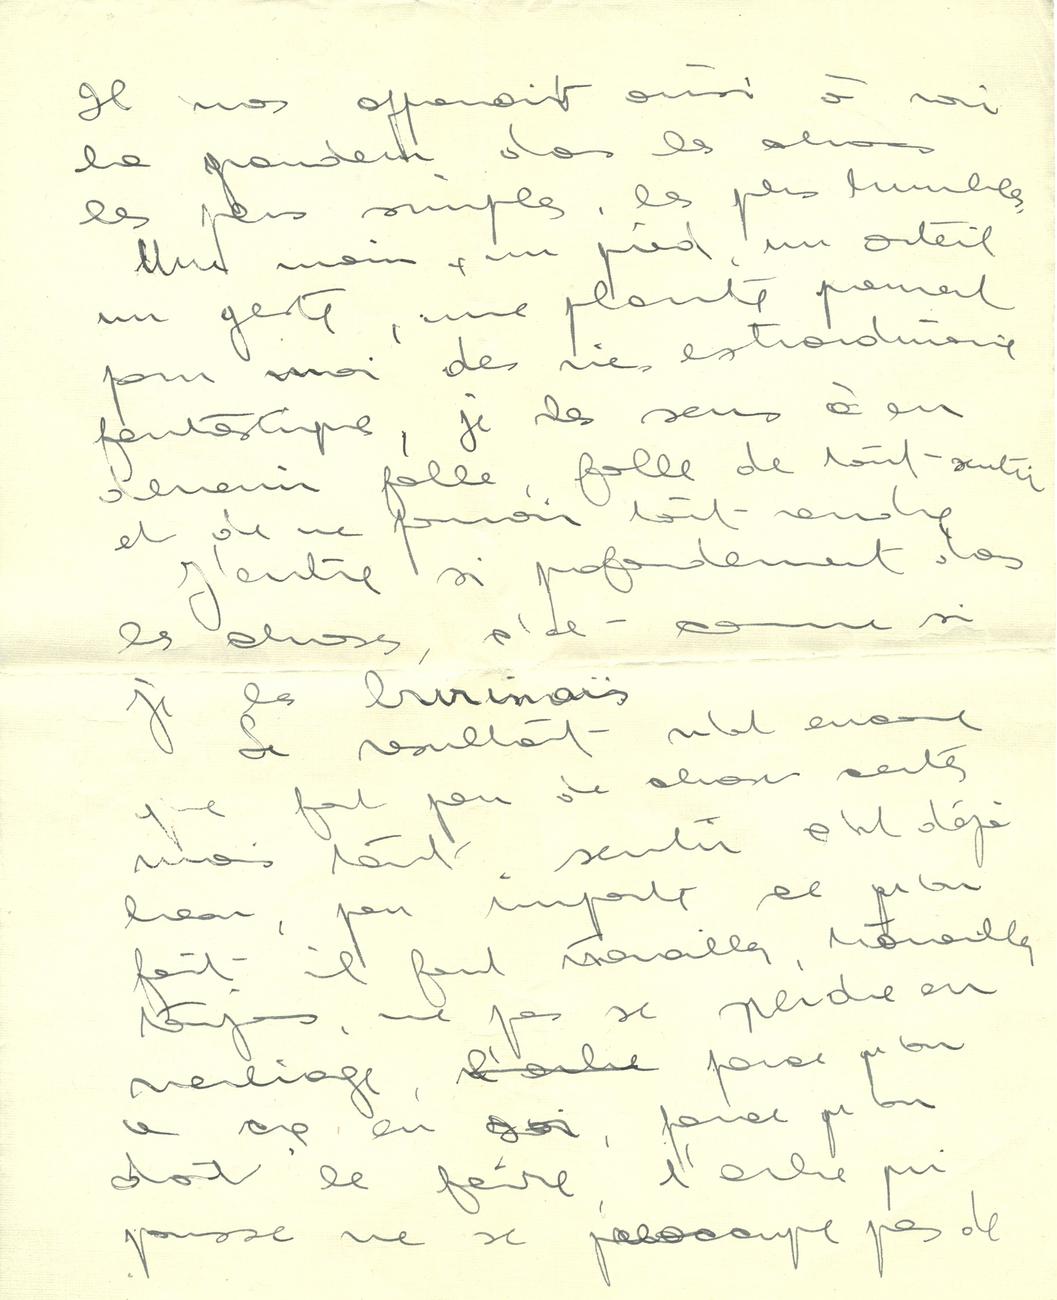 Il nous apparait ainsi à voi
la grandeur dans les choses
les plus simples, les plus humbles,
Une main, un pied, un orteil
un geste, une plante prennent
pour moi des vies extraordinaire
fantastiques, je les sens à en
devenir folle, folle de tout sentir
et de ne pouvoir tout rendre
J'entre si profondement dans
les choses, c'est comme si
je les burinais
Le resultat n'est encore
que fort peu de chose certes
mais tant sentir c'est déjà
beau, peu importe ce qu'on
fait il faut travailler, travailler
toujours, ne pas se perdre en
verbiage, l'arbre parce qu'on
a ça en soi, parce qu'on
doit le faire, l'arbre qui
pousse ne se préoccupe pas de